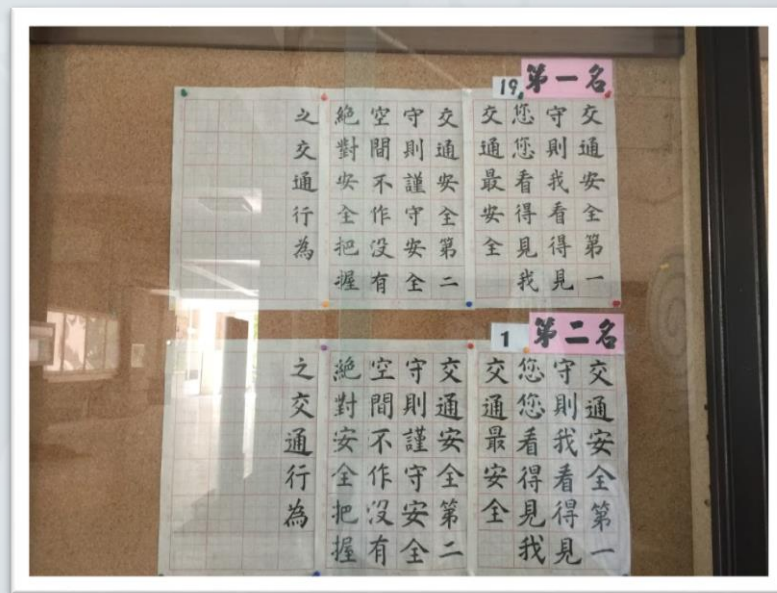 19
第一名
交通安全第一
守則我看得見
您您看得見我
交通最安全
交通安全第二
守則謹守安全
空間不作没有
絕對安全把握
之交通行為
1
第二名
交通安全第一
守則我看得見
您您看得見我
交通最安全
交通安全第二
守則謹守安全
空間不作沒有
絕對安全把握
之交通行為